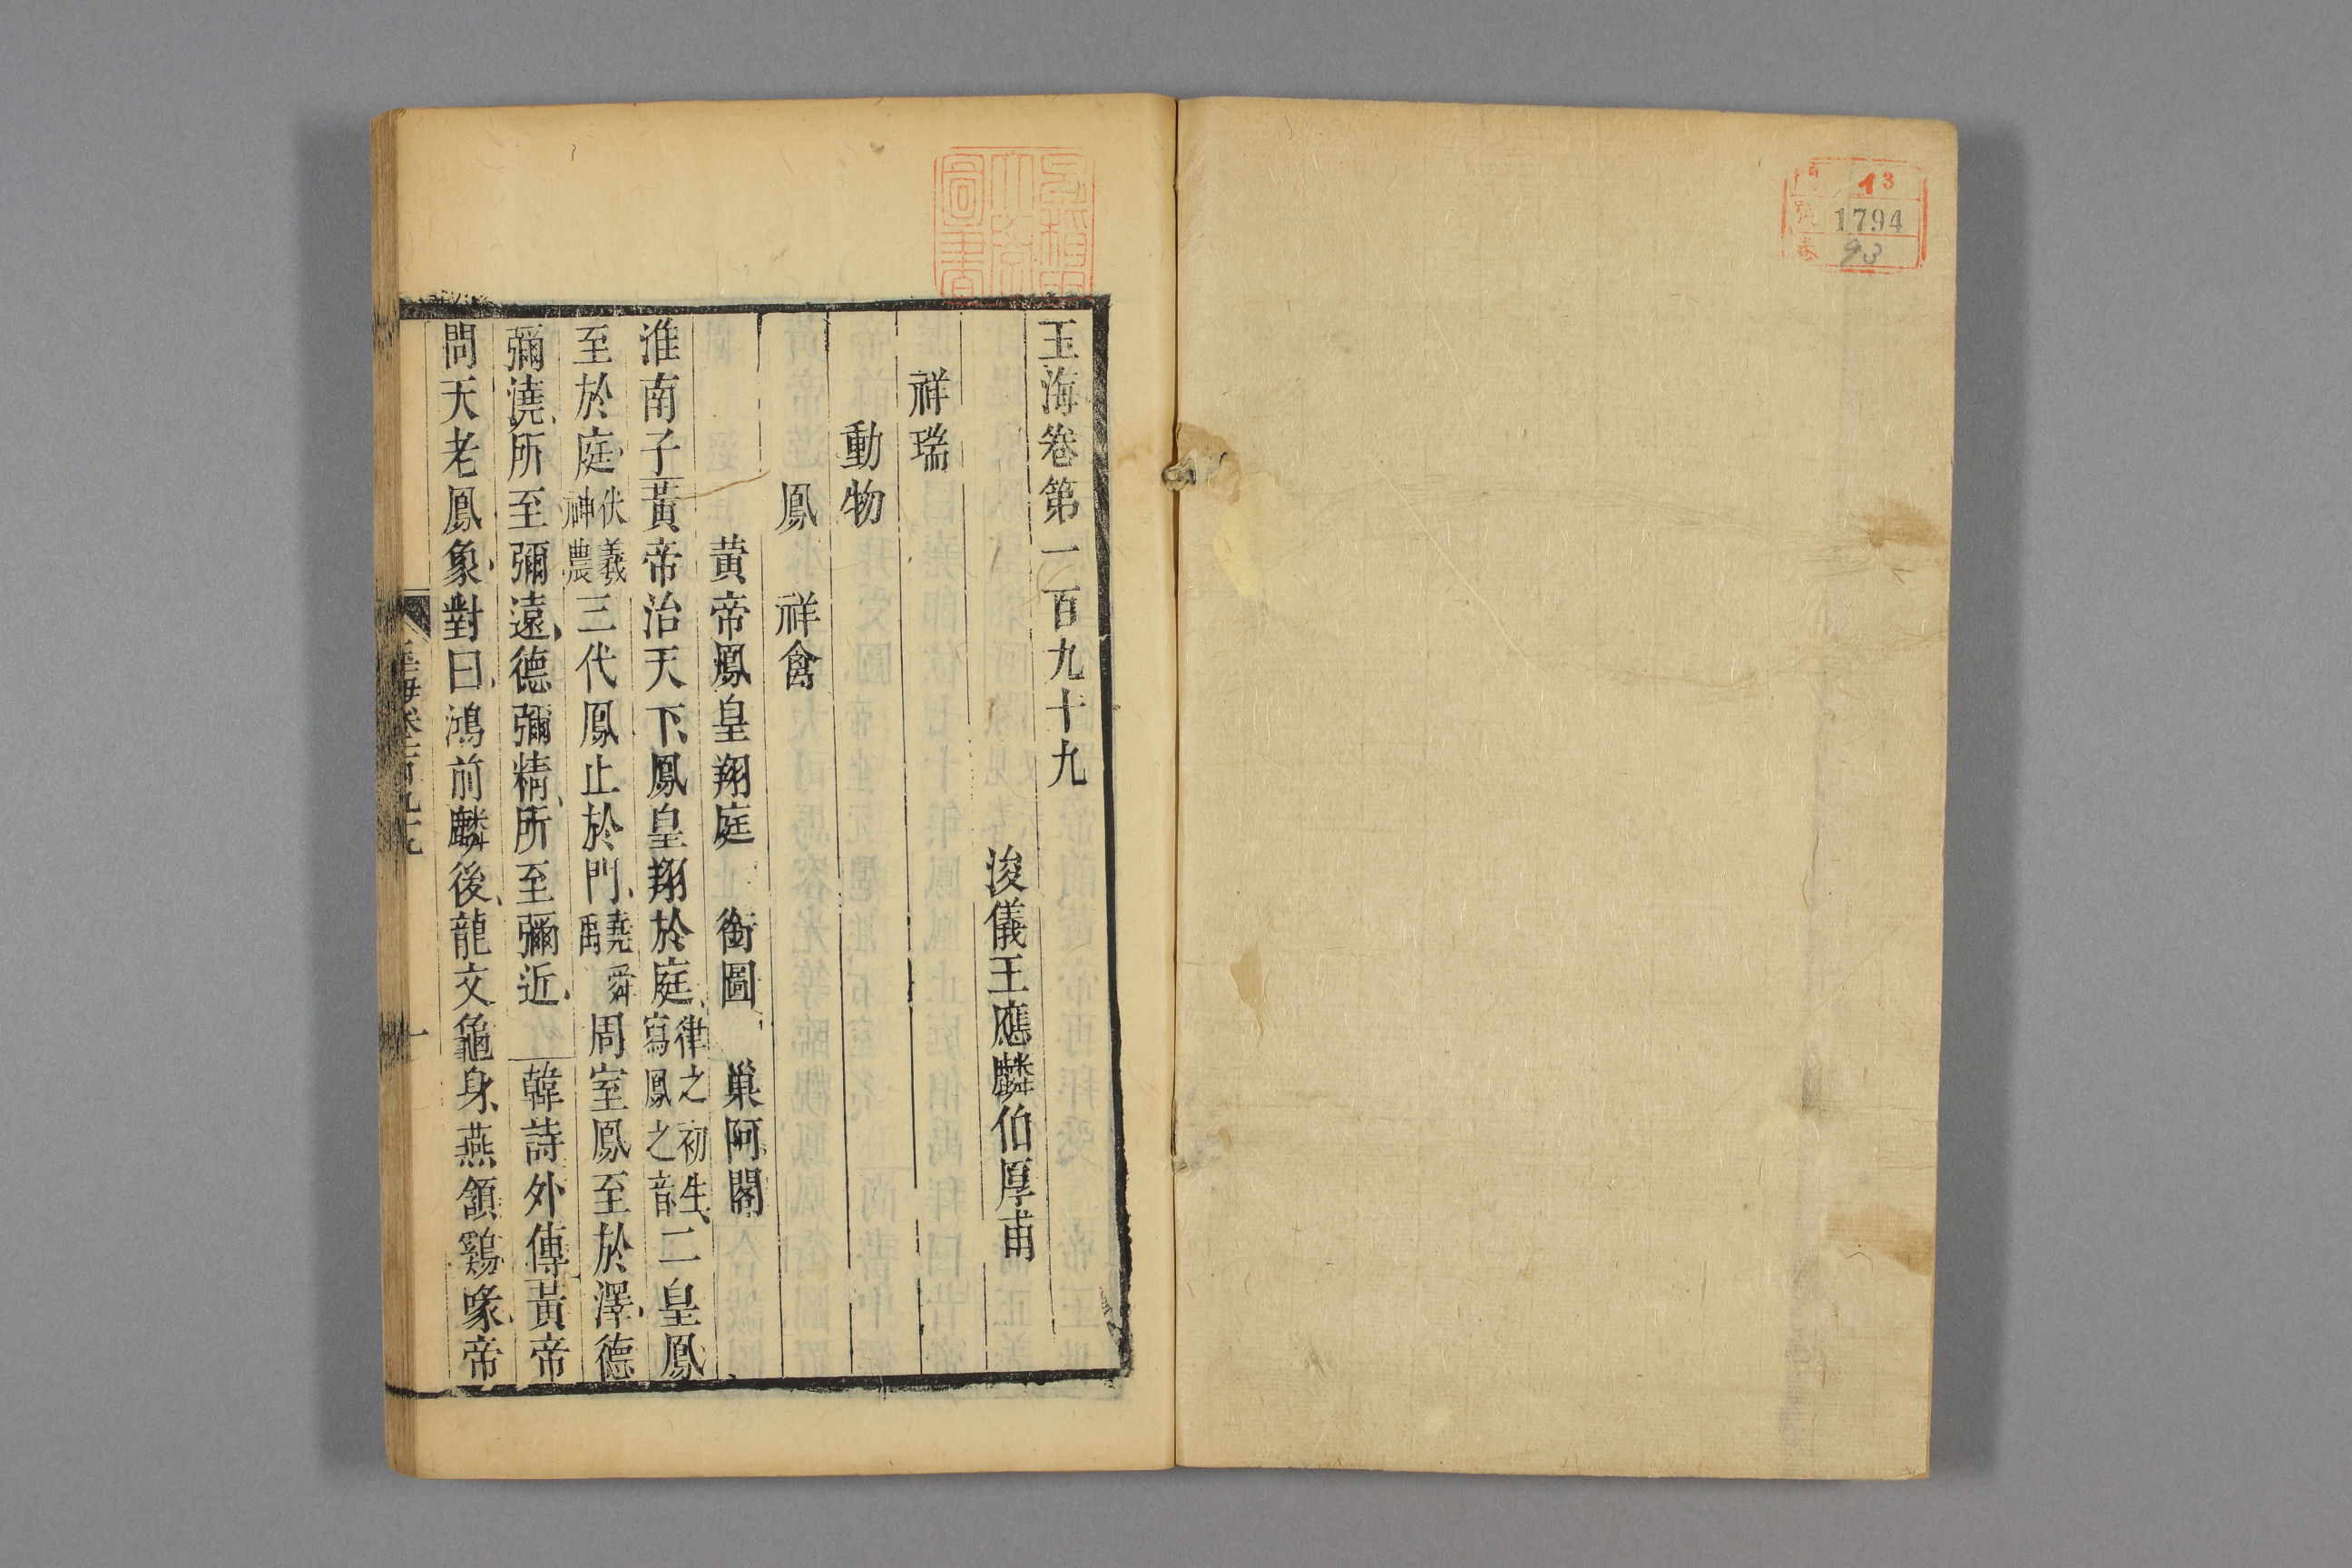 玉海卷第一百九十九
浚儀王應麟伯厚甫
祥瑞
動物
鳳　祥禽
黃帝鳳皇翔庭　銜圖　巢阿閣
淮南子黃帝治天下鳳皇翔於庭律之初生寫鳳之音二皇鳳
至於庭伏羲神農三代鳳止於門堯舜禹周室鳳至於澤德
彌澆所至彌遠德彌精所至彌近　韓詩外傳黃帝
問天老鳳象對曰鴻前麟後龍文龜身燕頷鷄喙帝
玉海卷一百九十九
一
13
1794
93